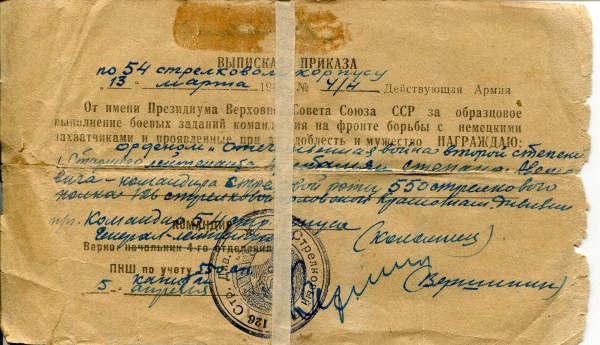 ВЫПИСКА ПРИКАЗА
по 54 стрелковому корпусу
13 марта 194 № 4/н Действующая Армия
От имени Президиума Верховно Совета Союза ССР за образцовое
выполнение боевых заданий команд ия на фронте борьбы с немецкими
захватчиками и проявленные при доблесть и мужество НАГРАЖДАЮ:
орденом отечественная война второй степени
Старшего лейтенанта степана
вича - командира стрелковой роты 550 стрелкового
полка 126 стрелковой дивизии
п/п. Командир 54 стр. корпуса
КОМАНДИ
Генерал-лейтенант (Коломиец)
Верно: начальник 4-го отделения
ПНШ по учету 550 сп
капитан (Вершинин)
5 апреля
126 Стр. Див. Стрелковый